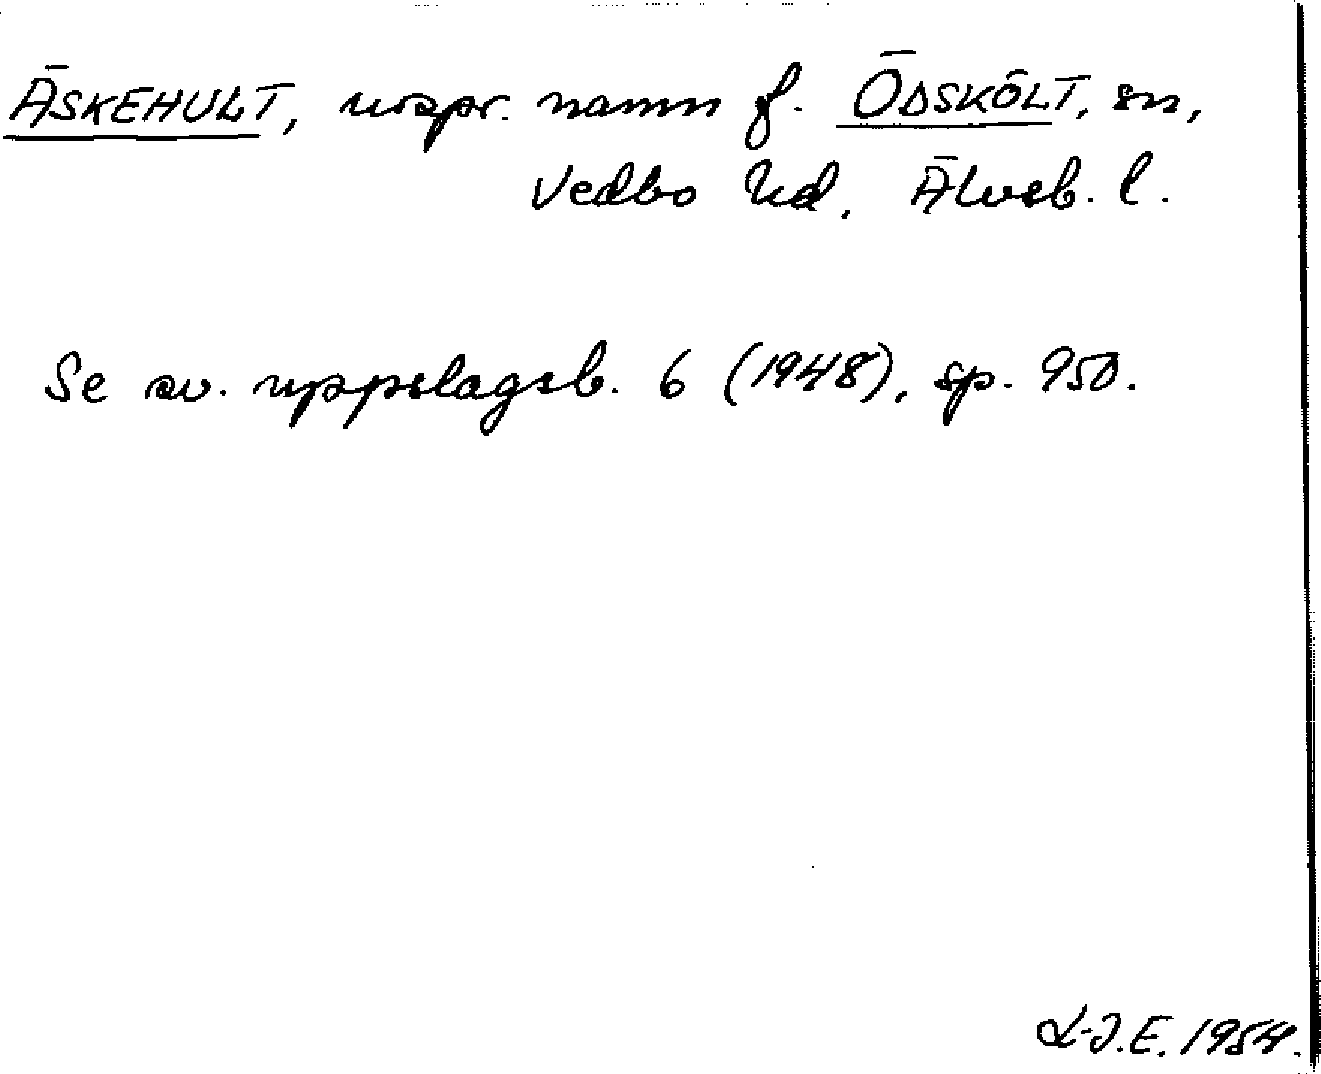 ÄSKEHULT, urspr. namn f. ÖDSKÖLT, sn,
Vedbo hd, Älvsb. l.
Se sv. uppslagsb. 6 (1948), sp. 950.
L-J.E. 1954.